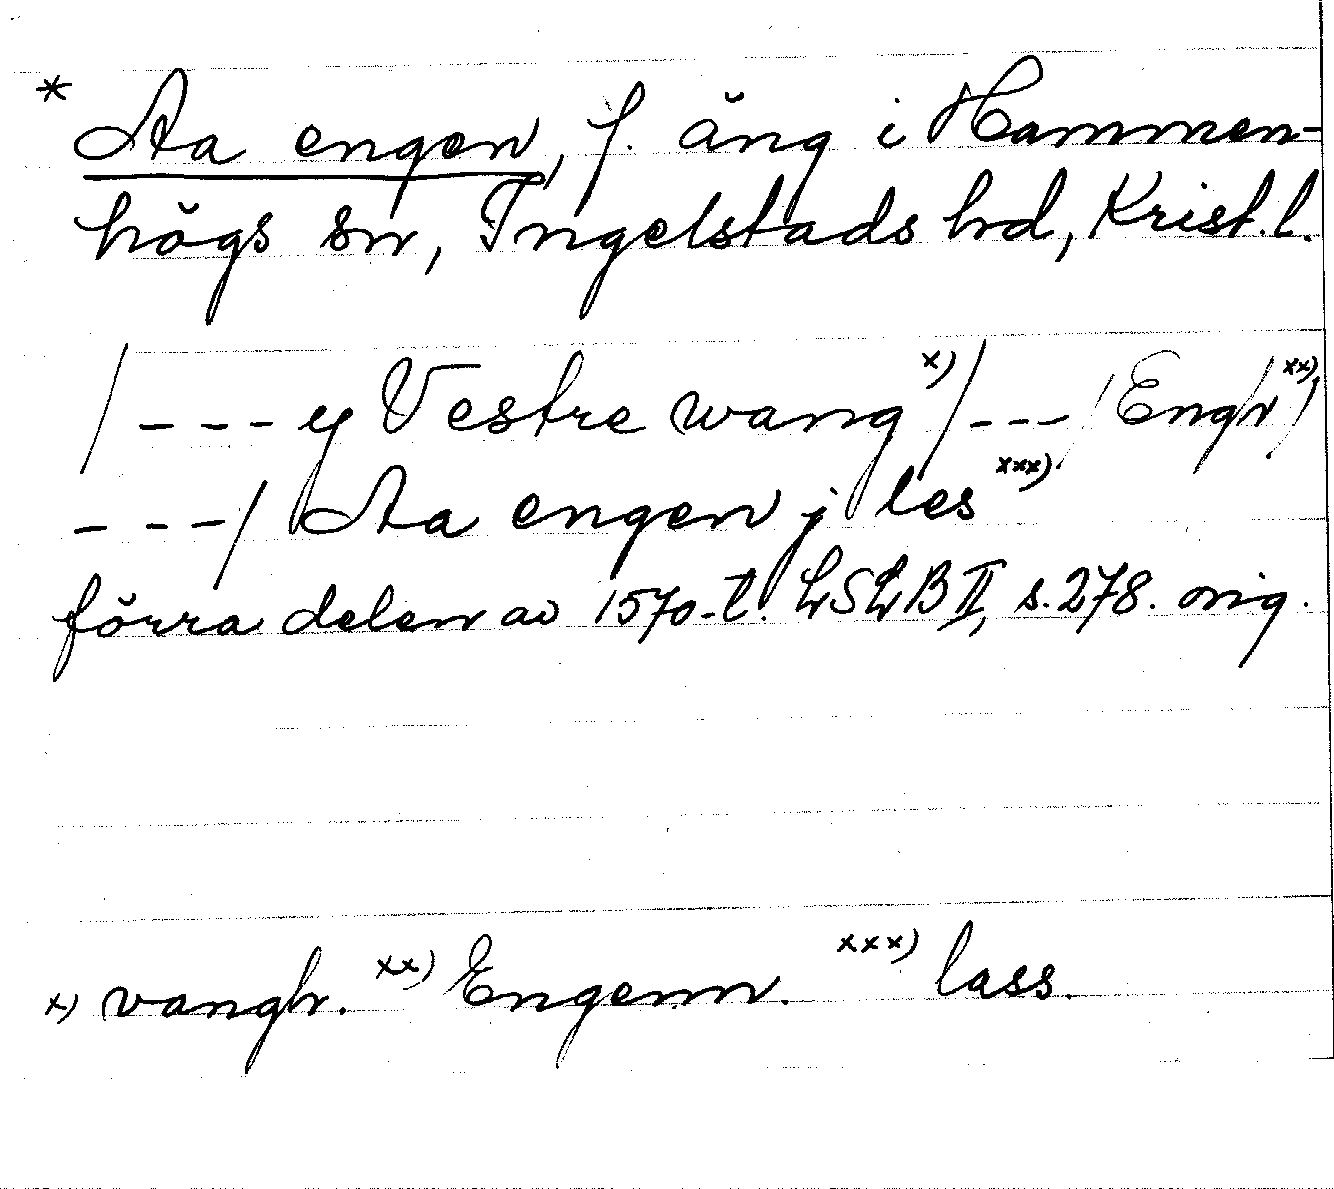 * Aa engen, f. äng i Hammen-
högs sn, Ingelstads hd, Krist. l.
/ - - - y Vestre wang x) / - - - / Engh xx) /
- - - / Aa engen j les xxx)
förra delen av 1570-t. LSLB II, s. 278. orig.
x) vangh. xx) Engenn. xxx) lass.